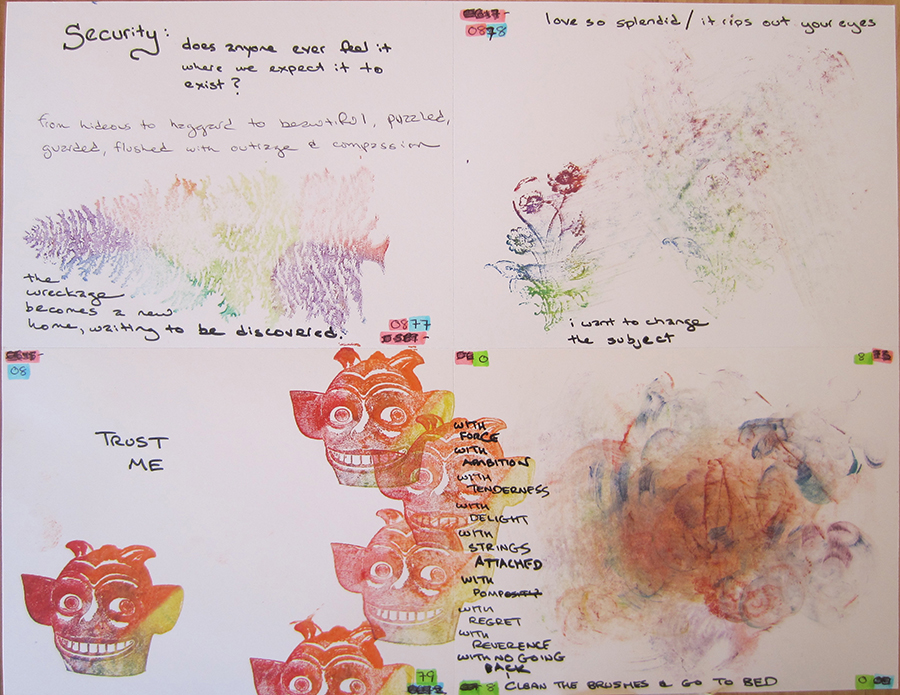 Security: does anyone ever feel it
where we expect it to
exist?
from hideous to haggard to beautiful, puzzled,
guarded, flushed with outrage & compassion
the
wreckage
becomes a new
home, waiting to be discovered.
0877
0878
love so splendid / it rips out your eyes
i want to change
the subject
08
TRUST
ME
79
0
8
WITH
FORCE
WITH
AMBITION
WITH
TENDERNESS
WITH
DELIGHT
WITH
STRINGS
ATTACHED
WITH
POMP
WITH
REGRET
WITH
REVERENCE
WITH NO GOING
BACK
8
I CLEAN THE BRUSHES & GO TO BED
0